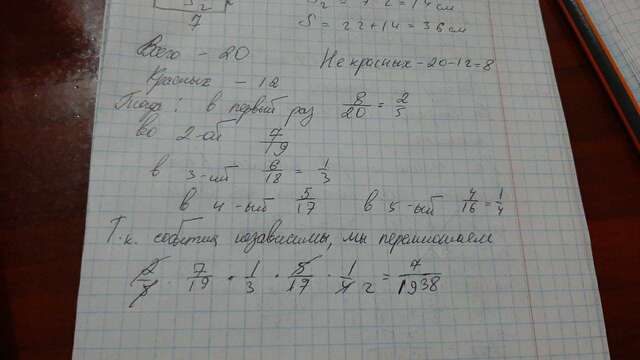 S₂
7
S₂ = 7·2 = 14 см
S = 22 + 14 = 36 см
Всего - 20
Не красных - 20-12=8
Красных - 12
Тогда: в первый раз 8/20 = 2/5
во 2-ой 7/19
в 3-ий 6/18 = 1/3
в 4-ый 5/17 в 5-ый 4/16 = 1/4
Т.к. события независимы, мы перемножаем
2/5 · 7/19 · 1/3 · 5/17 · 1/4 2 = 7/1938